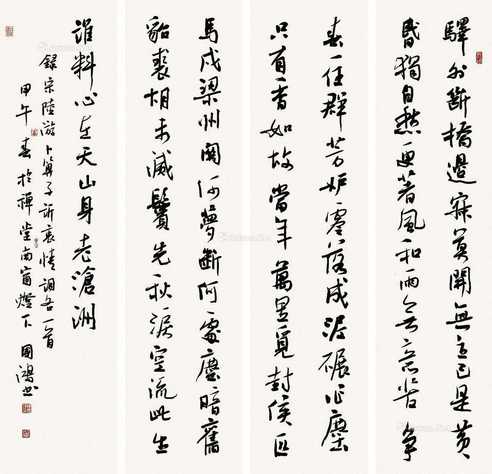 驛外斷橋邊寂寞開無主已是黃
昏獨自愁更著風和雨無意苦爭
春一任群芳妒零落成泥碾作塵
只有香如故當年萬里覓封侯匹
馬戍梁州關河夢斷何處塵暗舊
貂裘胡未滅鬢先秋淚空流此生
誰料心在天山身老滄洲
錄宋陸游卜算子訴衷情調各一首
甲午春於禪堂南窗燈下國鴻書